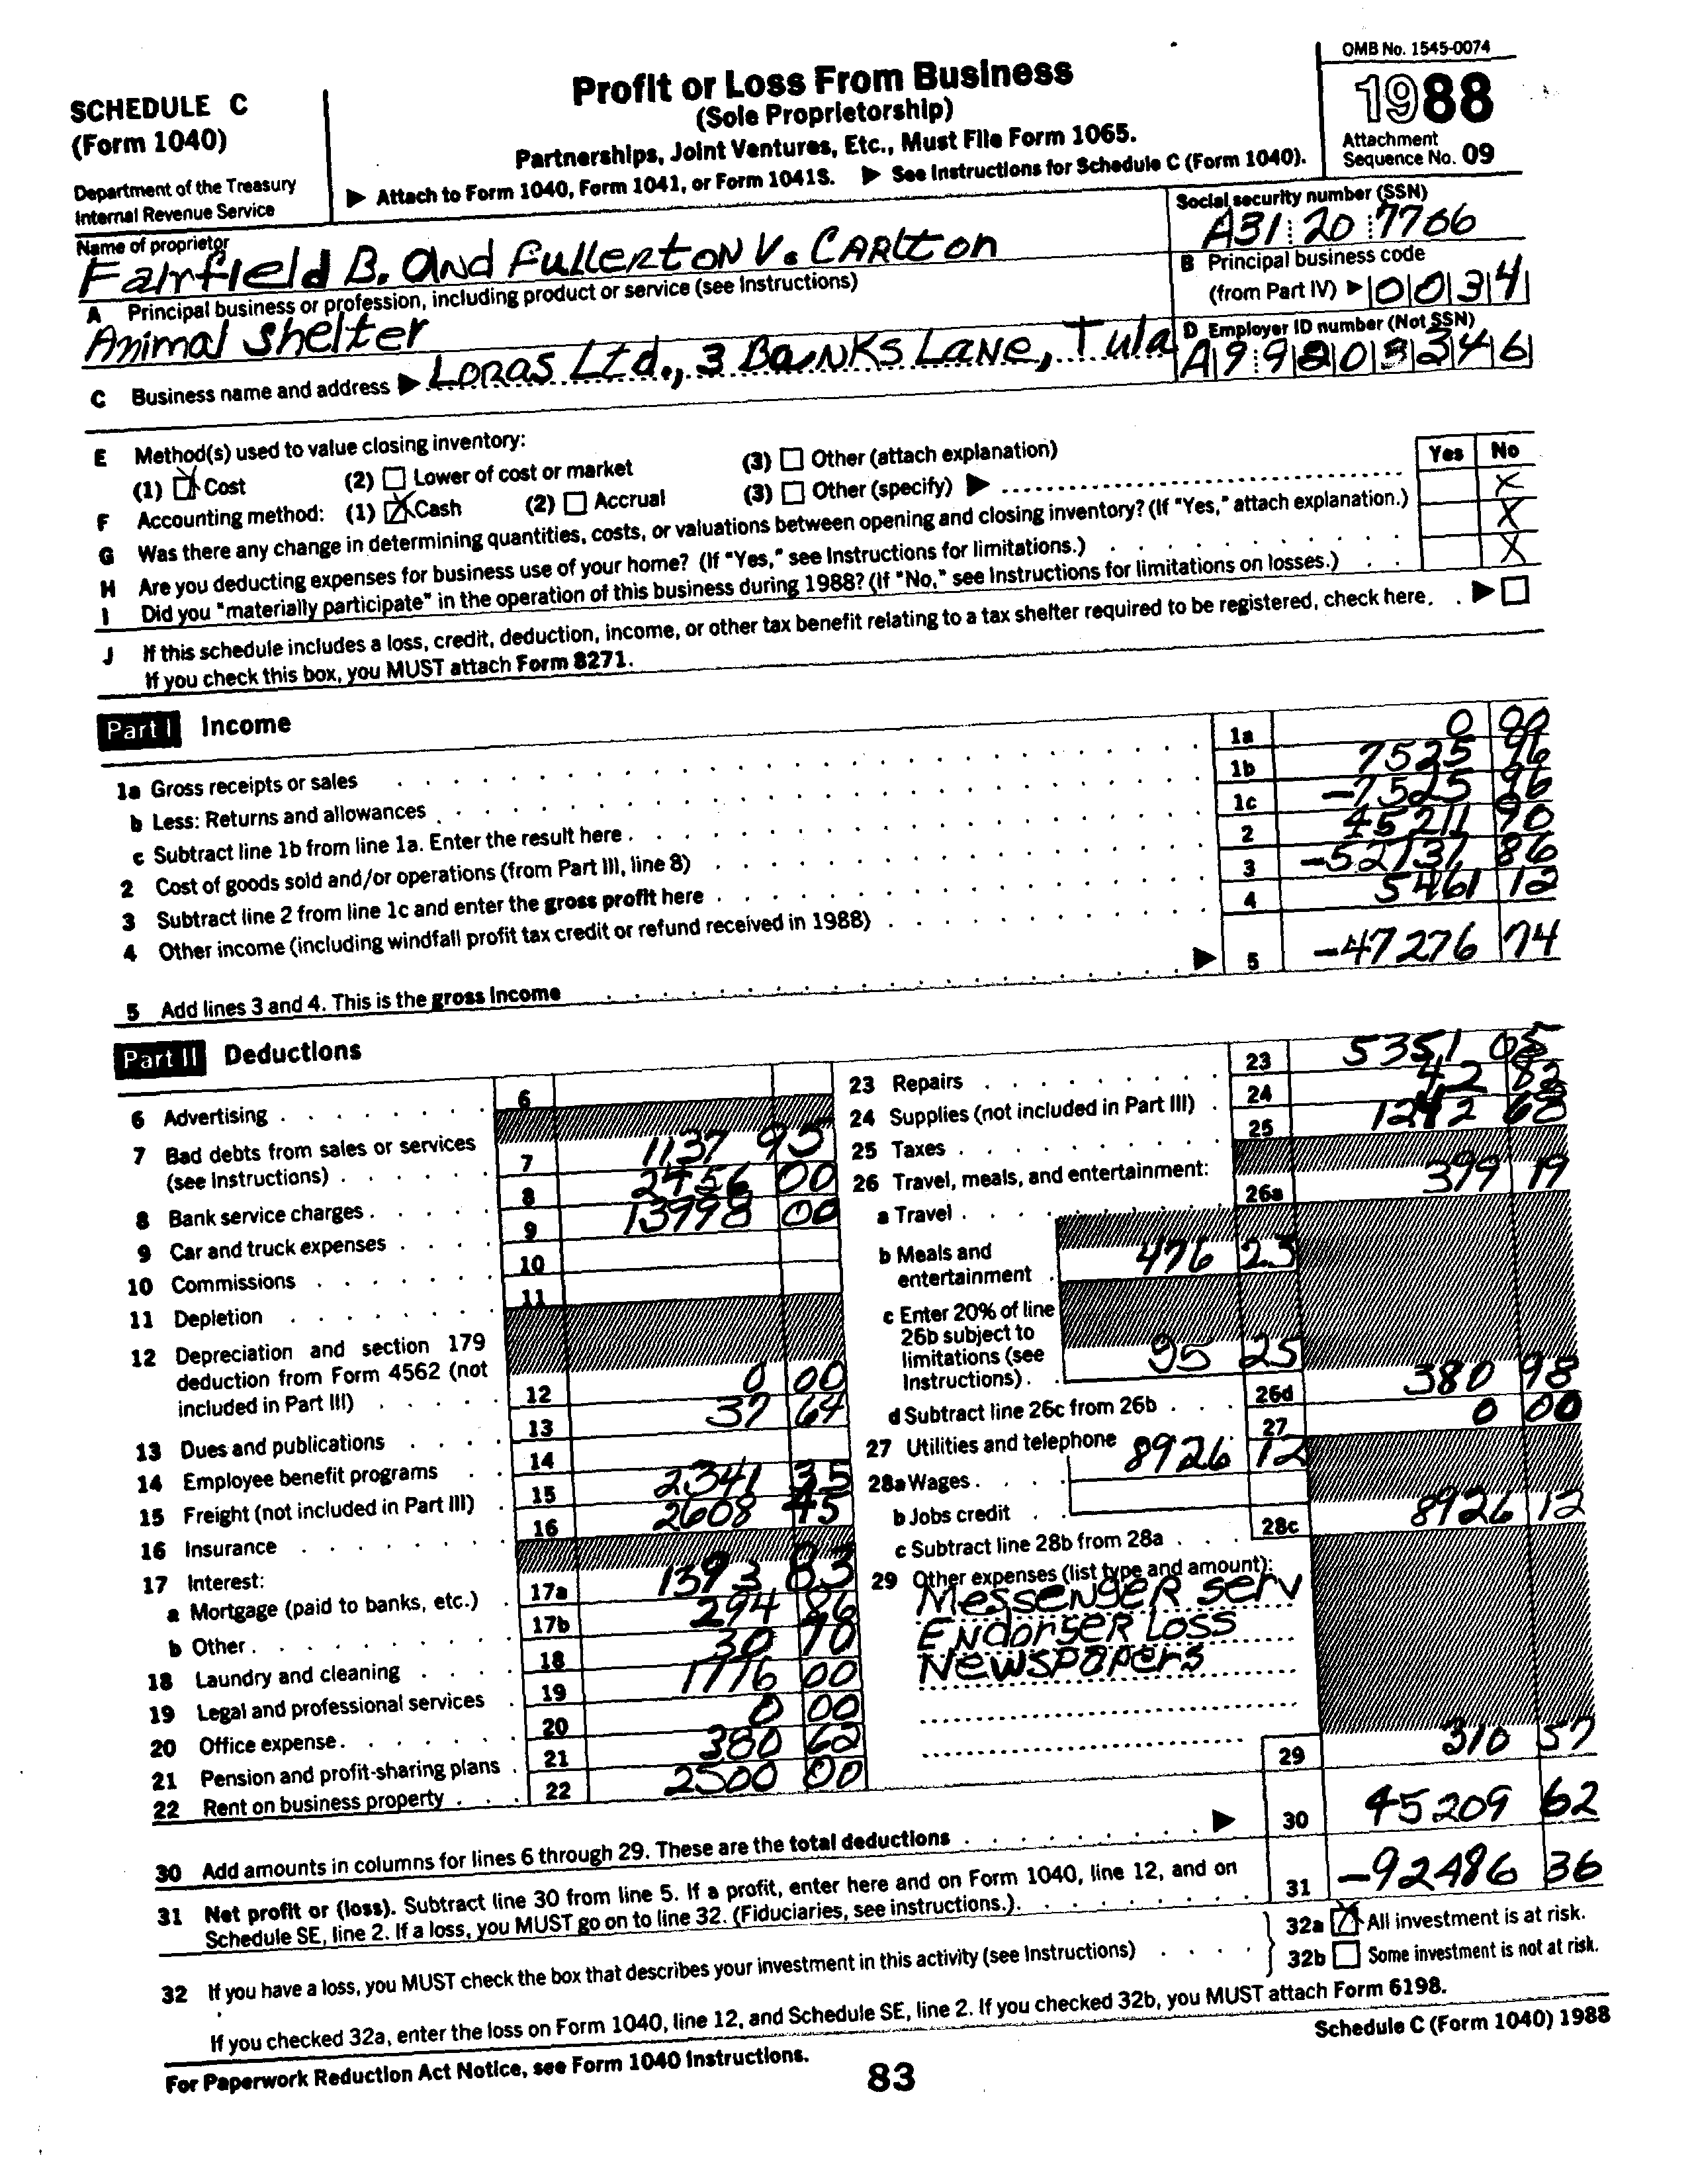 SCHEDULE C
(Form 1040)
Department of the Treasury
Internal Revenue Service
Profit or Loss From Business
(Sole Proprietorship)
Partnerships, Joint Ventures, Etc., Must File Form 1065.
▶ Attach to Form 1040, Form 1041, or Form 1041S. ▶ See Instructions for Schedule C (Form 1040).
OMB No. 1545-0074
1988
Attachment
Sequence No. 09
Name of proprietor
Fairfield B. and Fullerton V. Carlton
Social security number (SSN)
A31 20 7766
A Principal business or profession, including product or service (see Instructions)
Animal Shelter
B Principal business code
(from Part IV) ▶ 0034
C Business name and address ▶ Loras Ltd., 3 Banks Lane, Tula
D Employer ID number (Not SSN)
A99203346
E Method(s) used to value closing inventory:
(1) Cost (2) Lower of cost or market (3) Other (attach explanation)
F Accounting method: (1) Cash (2) Accrual (3) Other (specify) ▶
Yes No
G Was there any change in determining quantities, costs, or valuations between opening and closing inventory? (If "Yes," attach explanation.) X
H Are you deducting expenses for business use of your home? (If "Yes," see Instructions for limitations.) X
I Did you "materially participate" in the operation of this business during 1988? (If "No," see Instructions for limitations on losses.) X
J If this schedule includes a loss, credit, deduction, income, or other tax benefit relating to a tax shelter required to be registered, check here. ▶
If you check this box, you MUST attach Form 8271.
Part I Income
1a Gross receipts or sales 1a 0
b Less: Returns and allowances 1b 7525 96
c Subtract line 1b from line 1a. Enter the result here 1c -7525 96
2 Cost of goods sold and/or operations (from Part III, line 8) 2 45211 90
3 Subtract line 2 from line 1c and enter the gross profit here 3 -52737 86
4 Other income (including windfall profit tax credit or refund received in 1988) 4 5461 12
5 Add lines 3 and 4. This is the gross income ▶ 5 -47276 74
Part II Deductions
6 Advertising 6
7 Bad debts from sales or services
(see Instructions) 7 1137 95
8 Bank service charges 8 2456 00
9 Car and truck expenses 9 13998 00
10 Commissions 10
11 Depletion 11
12 Depreciation and section 179
deduction from Form 4562 (not
included in Part III) 12 0 00
13 Dues and publications 13 37 64
14 Employee benefit programs 14
15 Freight (not included in Part III) 15 2341 35
16 Insurance 16 2608 45
17 Interest:
a Mortgage (paid to banks, etc.) 17a 1393 83
b Other 17b 294 86
18 Laundry and cleaning 18 30 70
19 Legal and professional services 19 1776 00
20 Office expense 20 0 00
21 Pension and profit-sharing plans 21 380 62
22 Rent on business property 22 2500 00
23 Repairs 23 5351 05
24 Supplies (not included in Part III) 24 42 82
25 Taxes 25 1242 68
26 Travel, meals, and entertainment:
a Travel 26a 399 19
b Meals and
entertainment 476 23
c Enter 20% of line
26b subject to
limitations (see
Instructions) 95 25
d Subtract line 26c from 26b 26d 380 98
27 Utilities and telephone 27 0 00
28a Wages 8926 12
b Jobs credit
c Subtract line 28b from 28a 28c 8926 12
29 Other expenses (list type and amount):
Messenger serv
Endorser Loss
Newspapers
29 310 57
30 Add amounts in columns for lines 6 through 29. These are the total deductions ▶ 30 45209 62
31 Net profit or (loss). Subtract line 30 from line 5. If a profit, enter here and on Form 1040, line 12, and on
Schedule SE, line 2. If a loss, you MUST go on to line 32. (Fiduciaries, see instructions.) 31 -92486 36
32 If you have a loss, you MUST check the box that describes your investment in this activity (see Instructions)
32a All investment is at risk.
32b Some investment is not at risk.
If you checked 32a, enter the loss on Form 1040, line 12, and Schedule SE, line 2. If you checked 32b, you MUST attach Form 6198.
For Paperwork Reduction Act Notice, see Form 1040 Instructions.
83
Schedule C (Form 1040) 1988